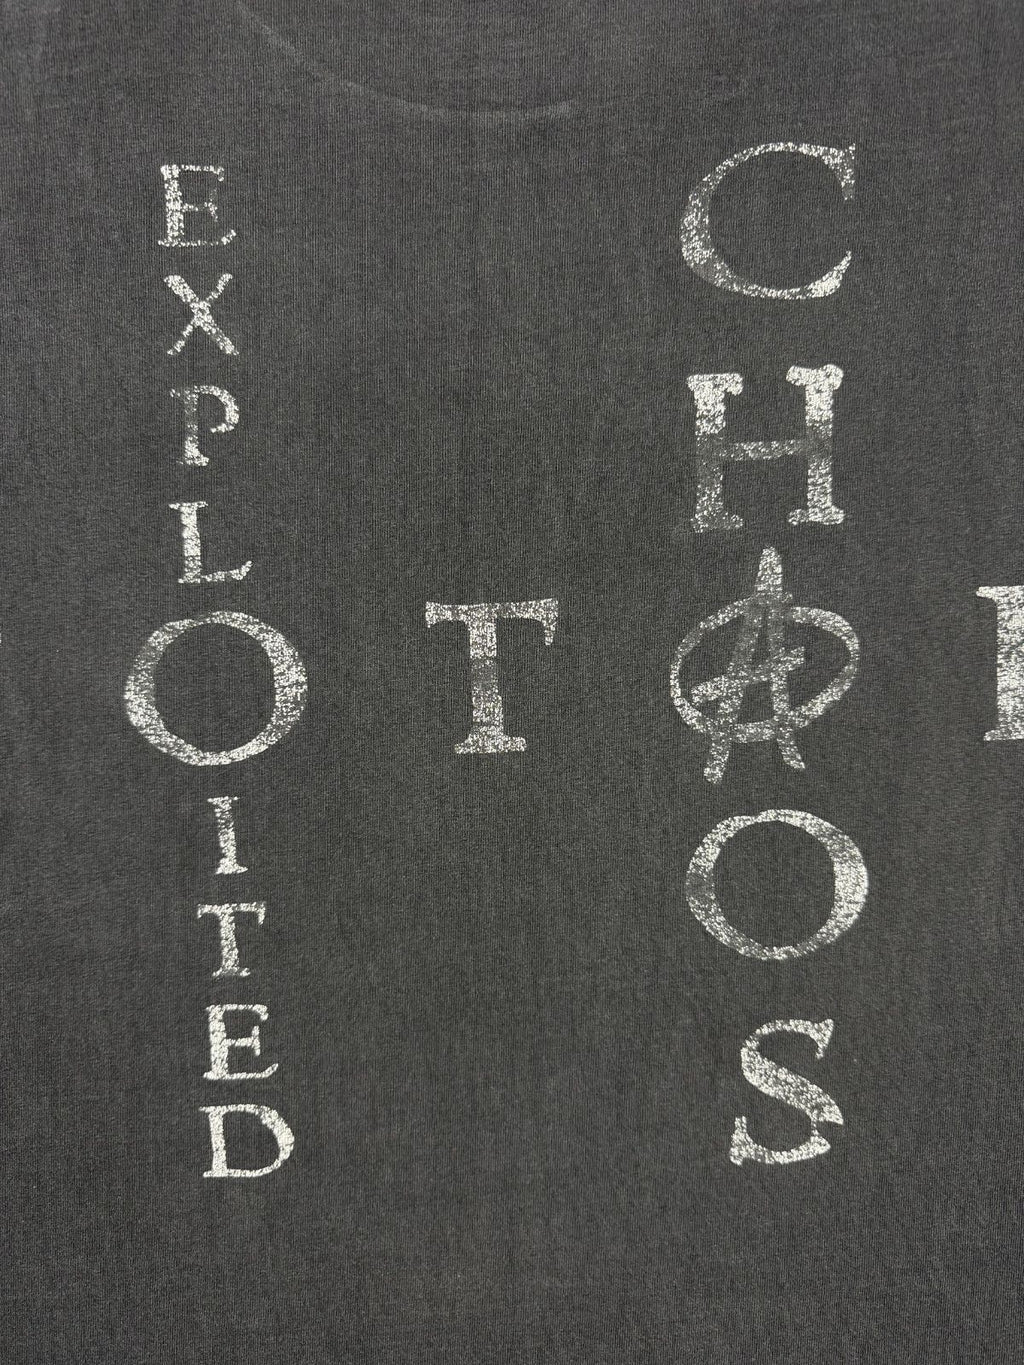 EXPLOITED
OTA
CHAOS